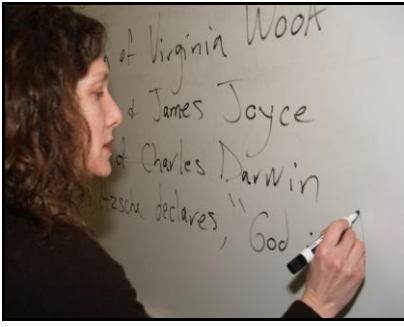 of Virginia Woolf
& James Joyce
of Charles Darwin
Nietzsche declares, "God i